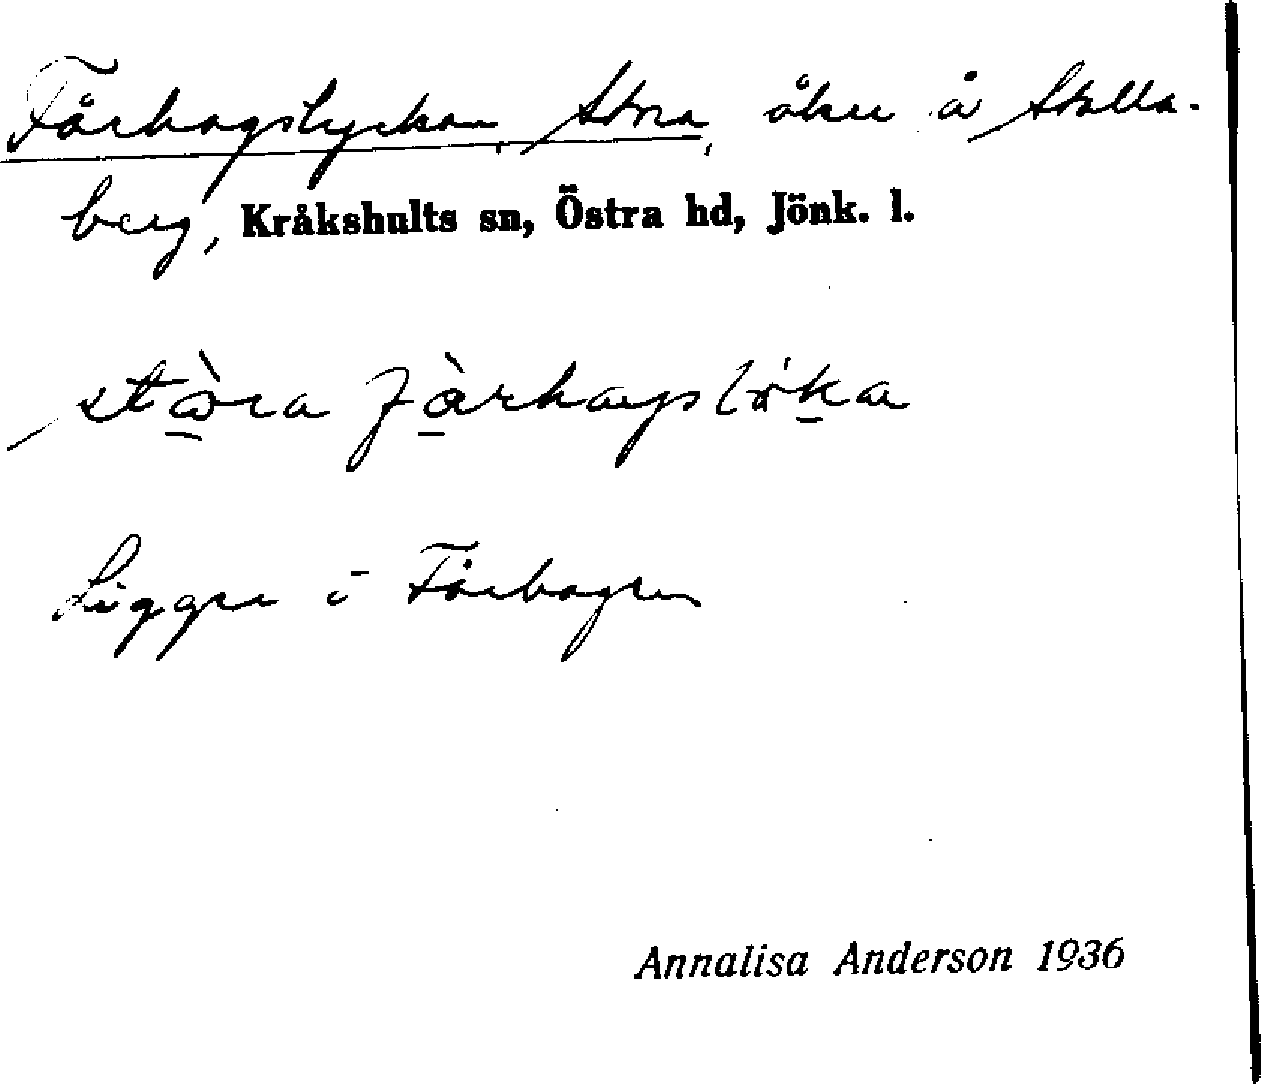 Fårhagslyckan, Stora, åker å Skälla-
berg, Kråkshults sn, Östra hd, Jönk. l.
Ligger i Fårhagen
Annalisa Anderson 1936